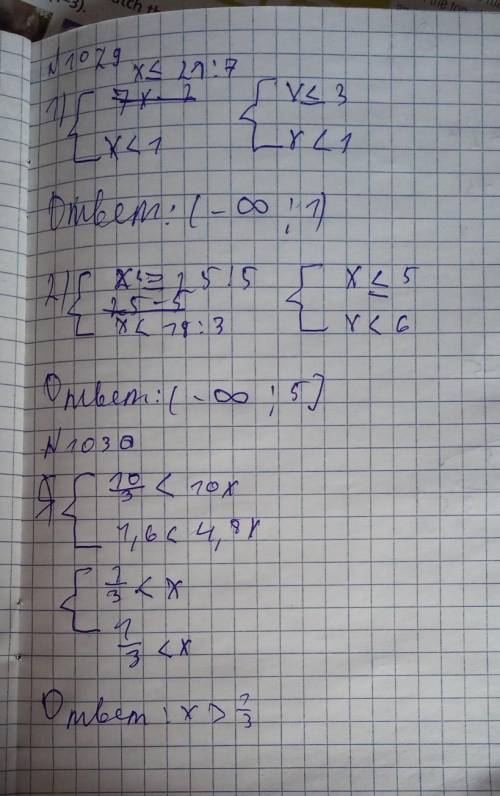 N1029
x ≤ 21:7
1) { 7x - 2
x < 1
{ x ≤ 3
x < 1
Ответ: (-∞; 1)
2) { x ≥ 25:5
25-5
x < 18:3
{ x ≤ 5
x < 6
Ответ: (-∞; 5]
N1030
{ 10/3 < 10x
1,6 < 4,8x
{ 1/3 < x
1/3 < x
Ответ: x > 1/3